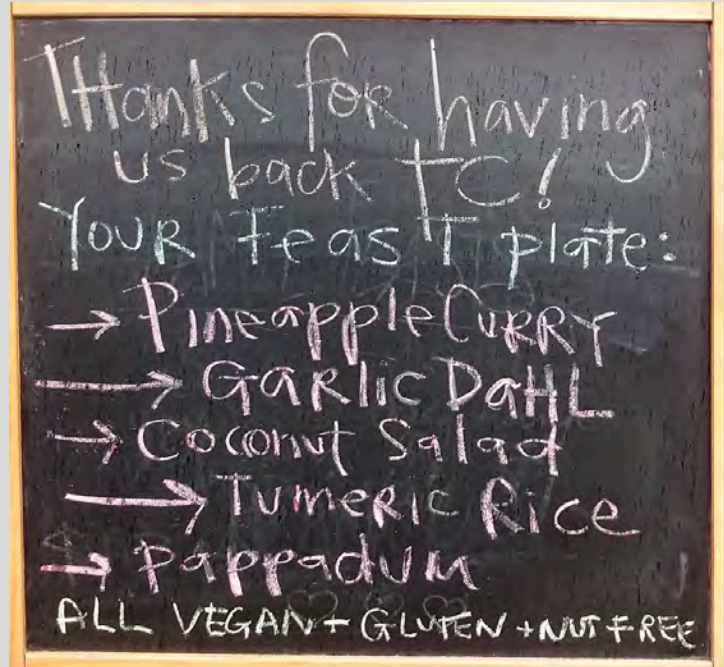 THanks for having
us back TC!
YOUR Feast plate:
→ PineappleCURRY
→ GARlic DaHL
→ Coconut Salad
→ TUMERIC Rice
→ Pappadum
ALL VEGAN + GLUTEN + NUT FREE